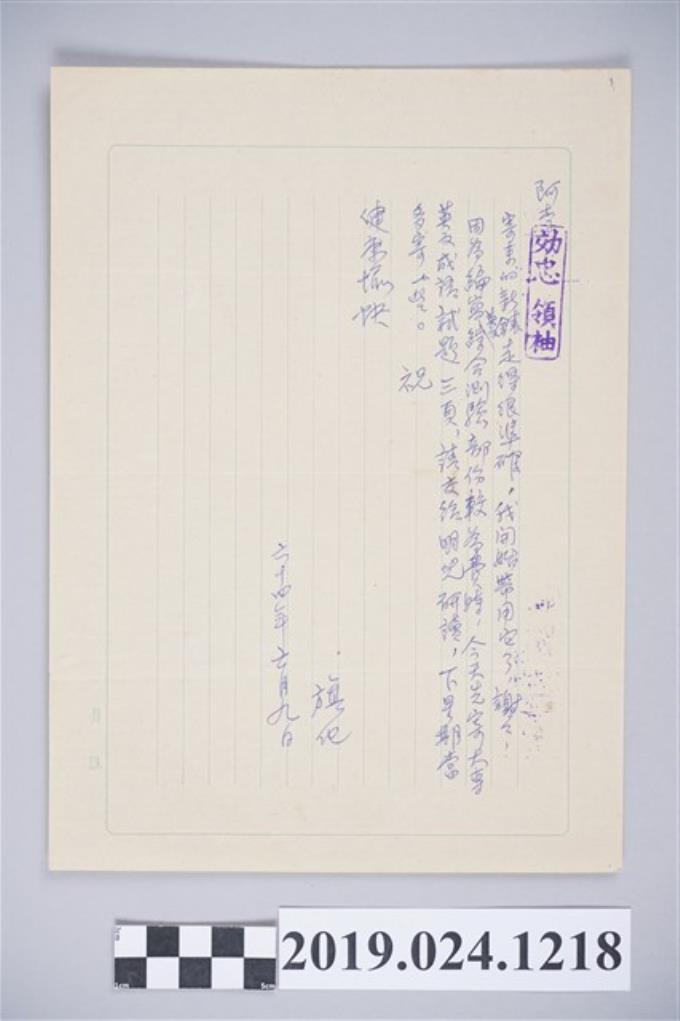 阿吉
效忠領袖
寄來的新錶走得很準確，我開始帶用它了，謝々，
因為編寫英文綜合測驗部份較為費時，今天先寄大專
英文成語試題三頁，請交給明兒研讀，下星期當
多寄一些。 祝
健康愉快
旗化
六十四年六月九日
2019.024.1218